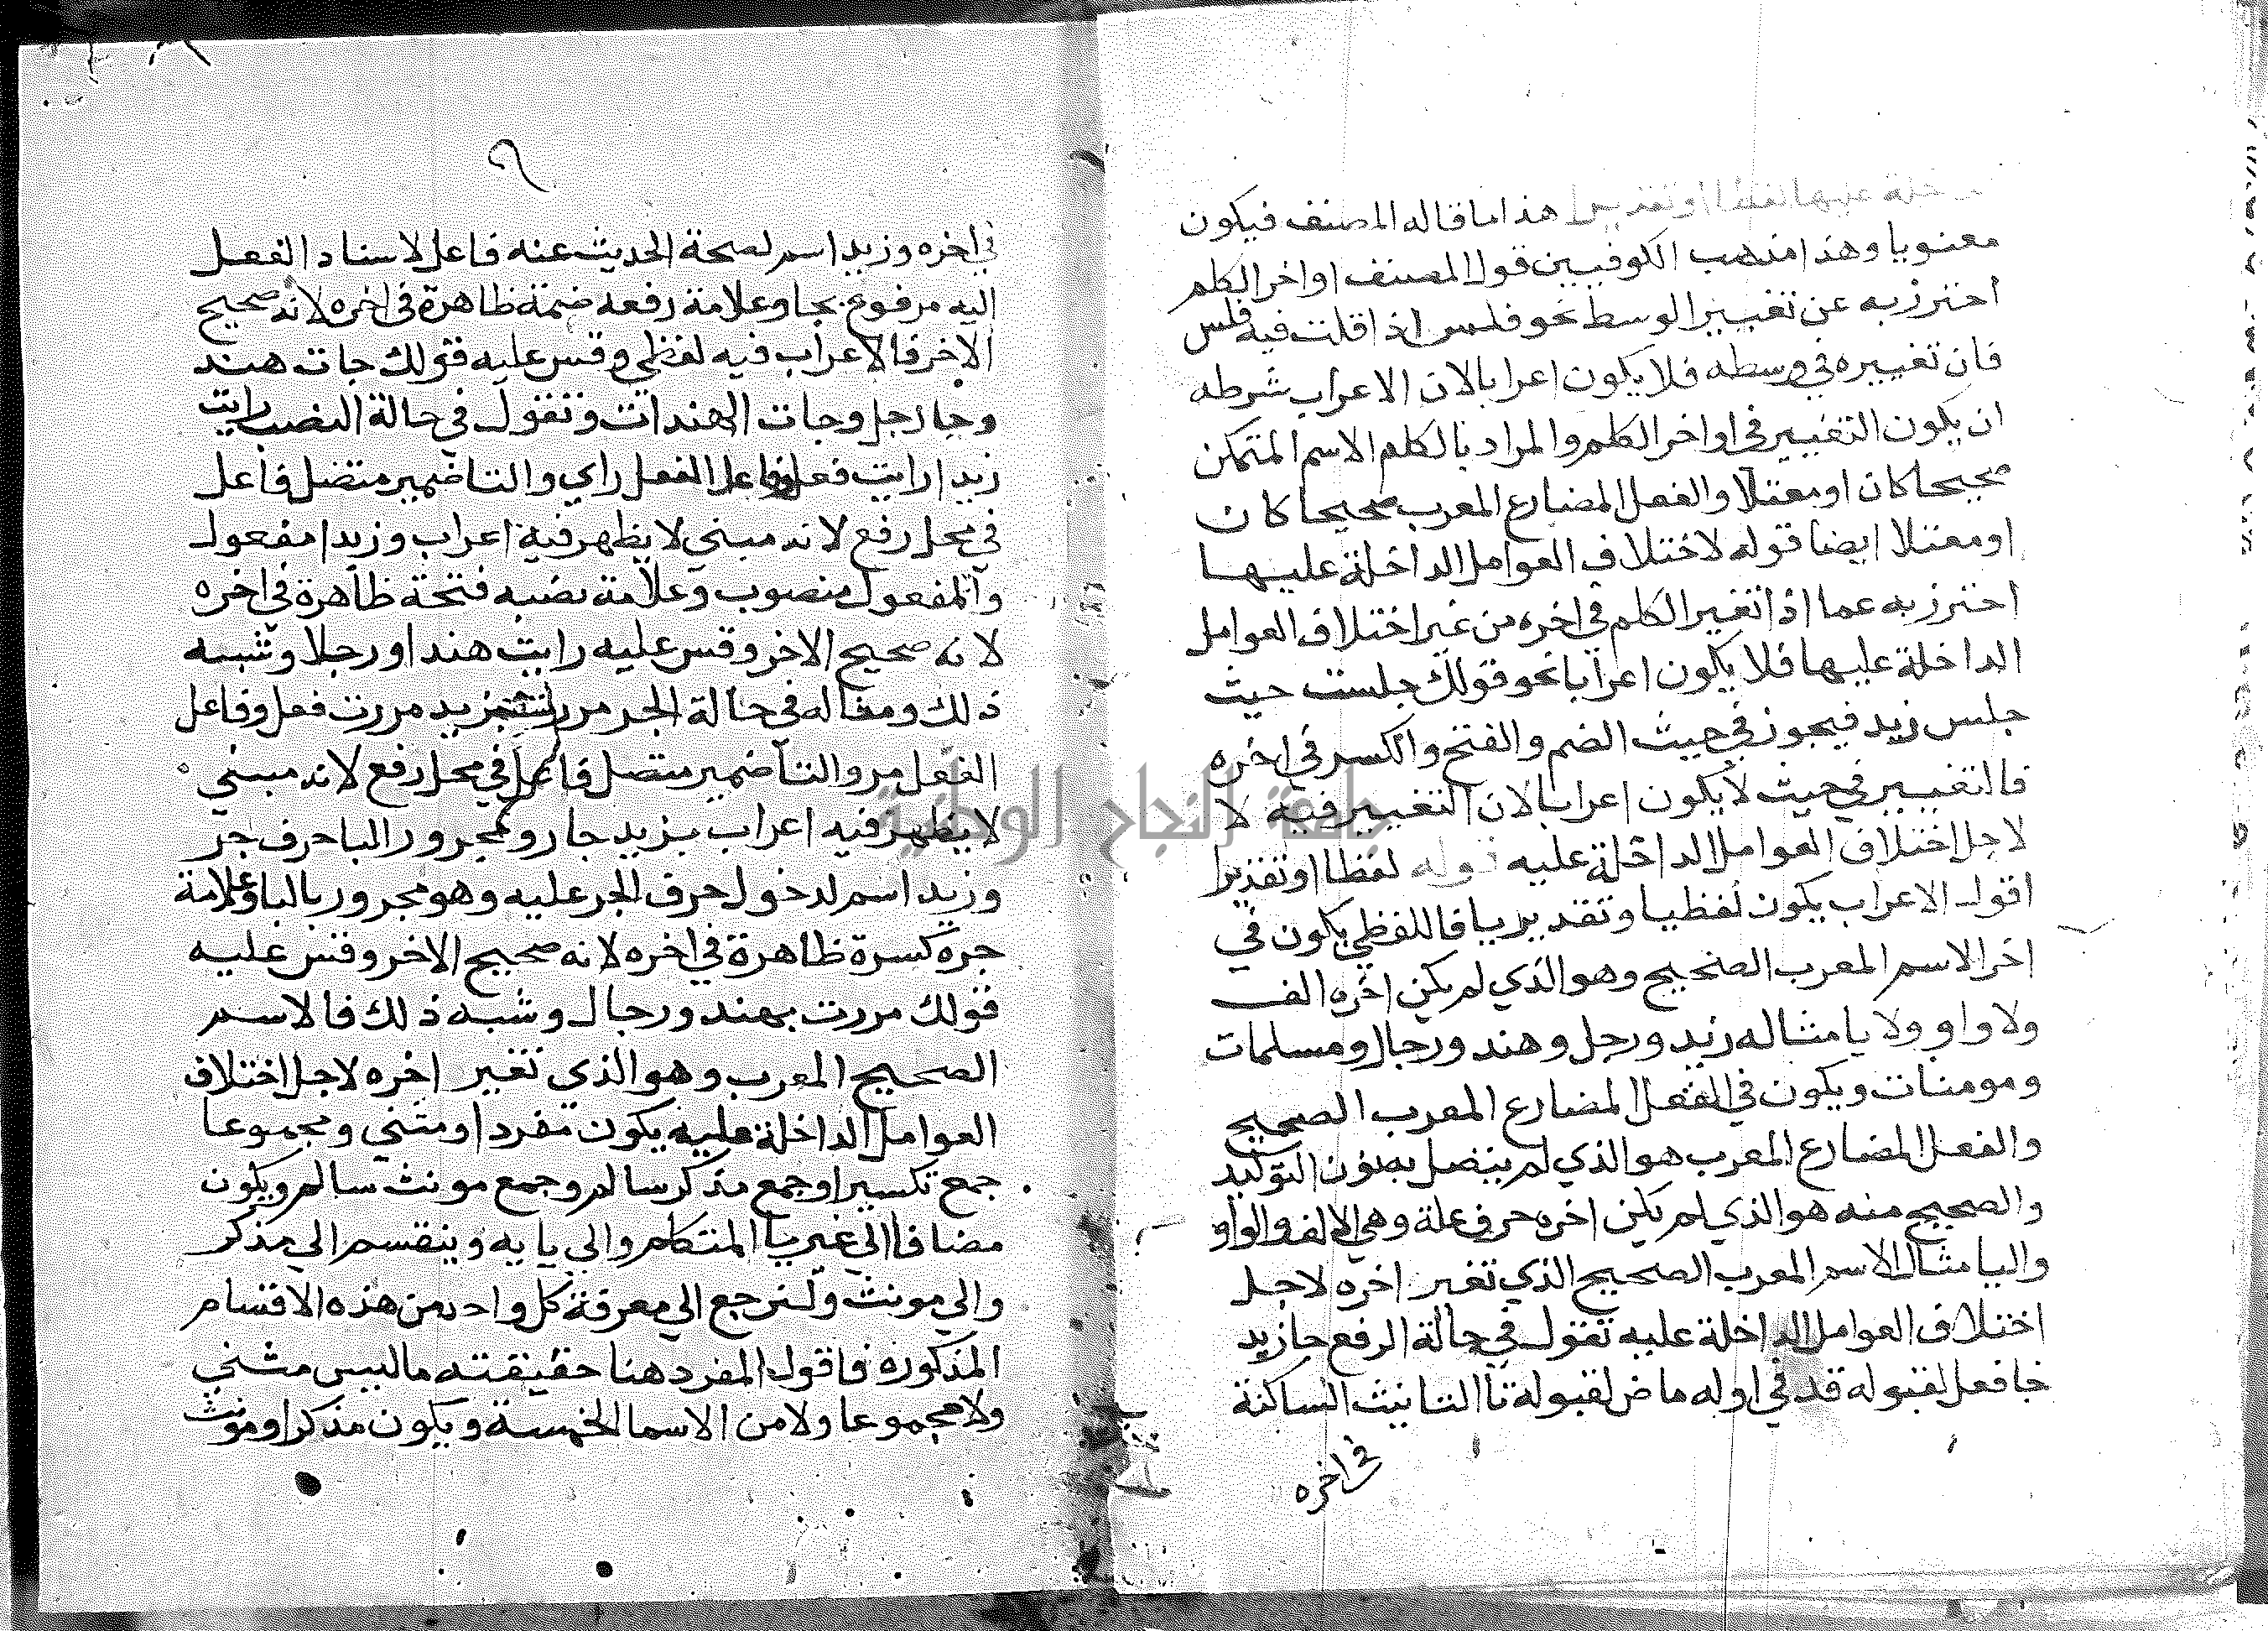 خلة عليها لفظا او تقديرا هذا ما قاله المصنف فيكون
معنويا وهذا مذهب الكوفيين قول المصنف اواخر الكلم
احترز به عن تغيير الوسط نحو فلس اذا قلت فيه فلس
فان تغييره في وسطه فلا يكون اعرابا لان الاعراب شرطه
ان يكون التغيير في اواخر الكلم والمراد بالكلم الاسم المتمكن
صحيحا كان او معتلا والفعل المضارع المعرب صحيحا كان
او معتلا ايضا قوله لاختلاف العوامل الداخلة عليها
احترز به عما اذا تغير الكلم في اخره من غير اختلاف العوامل
الداخلة عليها فلا يكون اعرابا نحو قولك جلست حيث
جلس زيد فيجوز في حيث الضم والفتح والكسر في اخره
فالتغيير في حيث لا يكون اعرابا لان التغيير فيه لا
لاجل اختلاف العوامل الداخلة عليه قوله لفظا او تقديرا
اقول الاعراب يكون لفظيا وتقديريا فاللفظي يكون في
اخر الاسم المعرب الصحيح وهو الذي لم يكن اخره الف
ولا واو ولا يا مثاله زيد ورجل وهند ورجال ومسلمات
ومومنات ويكون في الفعل المضارع المعرب الصحيح
والفعل المضارع المعرب هو الذي لم يتصل به نون التوكيد
والصحيح منه هو الذي لم يكن اخره حرف علة وهي الالف والواو
واليا مثال الاسم المعرب الصحيح الذي تغير اخره لاجل
اختلاف العوامل الداخلة عليه تقول في حالة الرفع جا زيد
جا فعل لقبوله قد في اوله ماض لقبوله تا التانيث الساكنة
في اخره
٩
في اخره وزيد اسم لصحة الحديث عنه فاعل لاسناد الفعل
اليه مرفوع بجا وعلامة رفعه ضمة ظاهرة في اخره لانه صحيح
الاخر فالاعراب فيه لفظي وقس عليه قولك جات هند
وجا رجل وجات الهندات وتقول في حالة النصب رايت
زيدا رايت فعل وفاعل الفعل راي والتا ضمير متصل فاعل
في محل رفع لانه مبني لا يظهر فيه اعراب وزيدا مفعول
والمفعول منصوب وعلامة نصبه فتحة ظاهرة في اخره
لانه صحيح الاخر وقس عليه رايت هندا ورجلا وشبه
ذلك ومثاله في حالة الجر مررت بزيد مررت فعل وفاعل
الفعل مر والتا ضمير متصل فاعل في محل رفع لانه مبني
لا يظهر فيه اعراب بزيد جار ومجرور البا حرف جر
وزيد اسم لدخول حرف الجر عليه وهو مجرور بالبا وعلامة
جره كسرة ظاهرة في اخره لانه صحيح الاخر وقس عليه
قولك مررت بهند ورجال وشبه ذلك فالاسم
الصحيح المعرب وهو الذي تغير اخره لاجل اختلاف
العوامل الداخلة عليه يكون مفردا ومثني ومجموعا
جمع تكسير او جمع مذكر سالم وجمع مونث سالم ويكون
مضافا الي غير يا المتكلم والي يايه وينقسم الي مذكر
والي مونث ولنرجع الي معرفة كل واحد من هذه الاقسام
المذكوره فاقول المفرد هنا حقيقته ما ليس مثني
ولا مجموعا ولا من الاسما الخمسة ويكون مذكرا ومونث
جامعة النجاح الوطنية